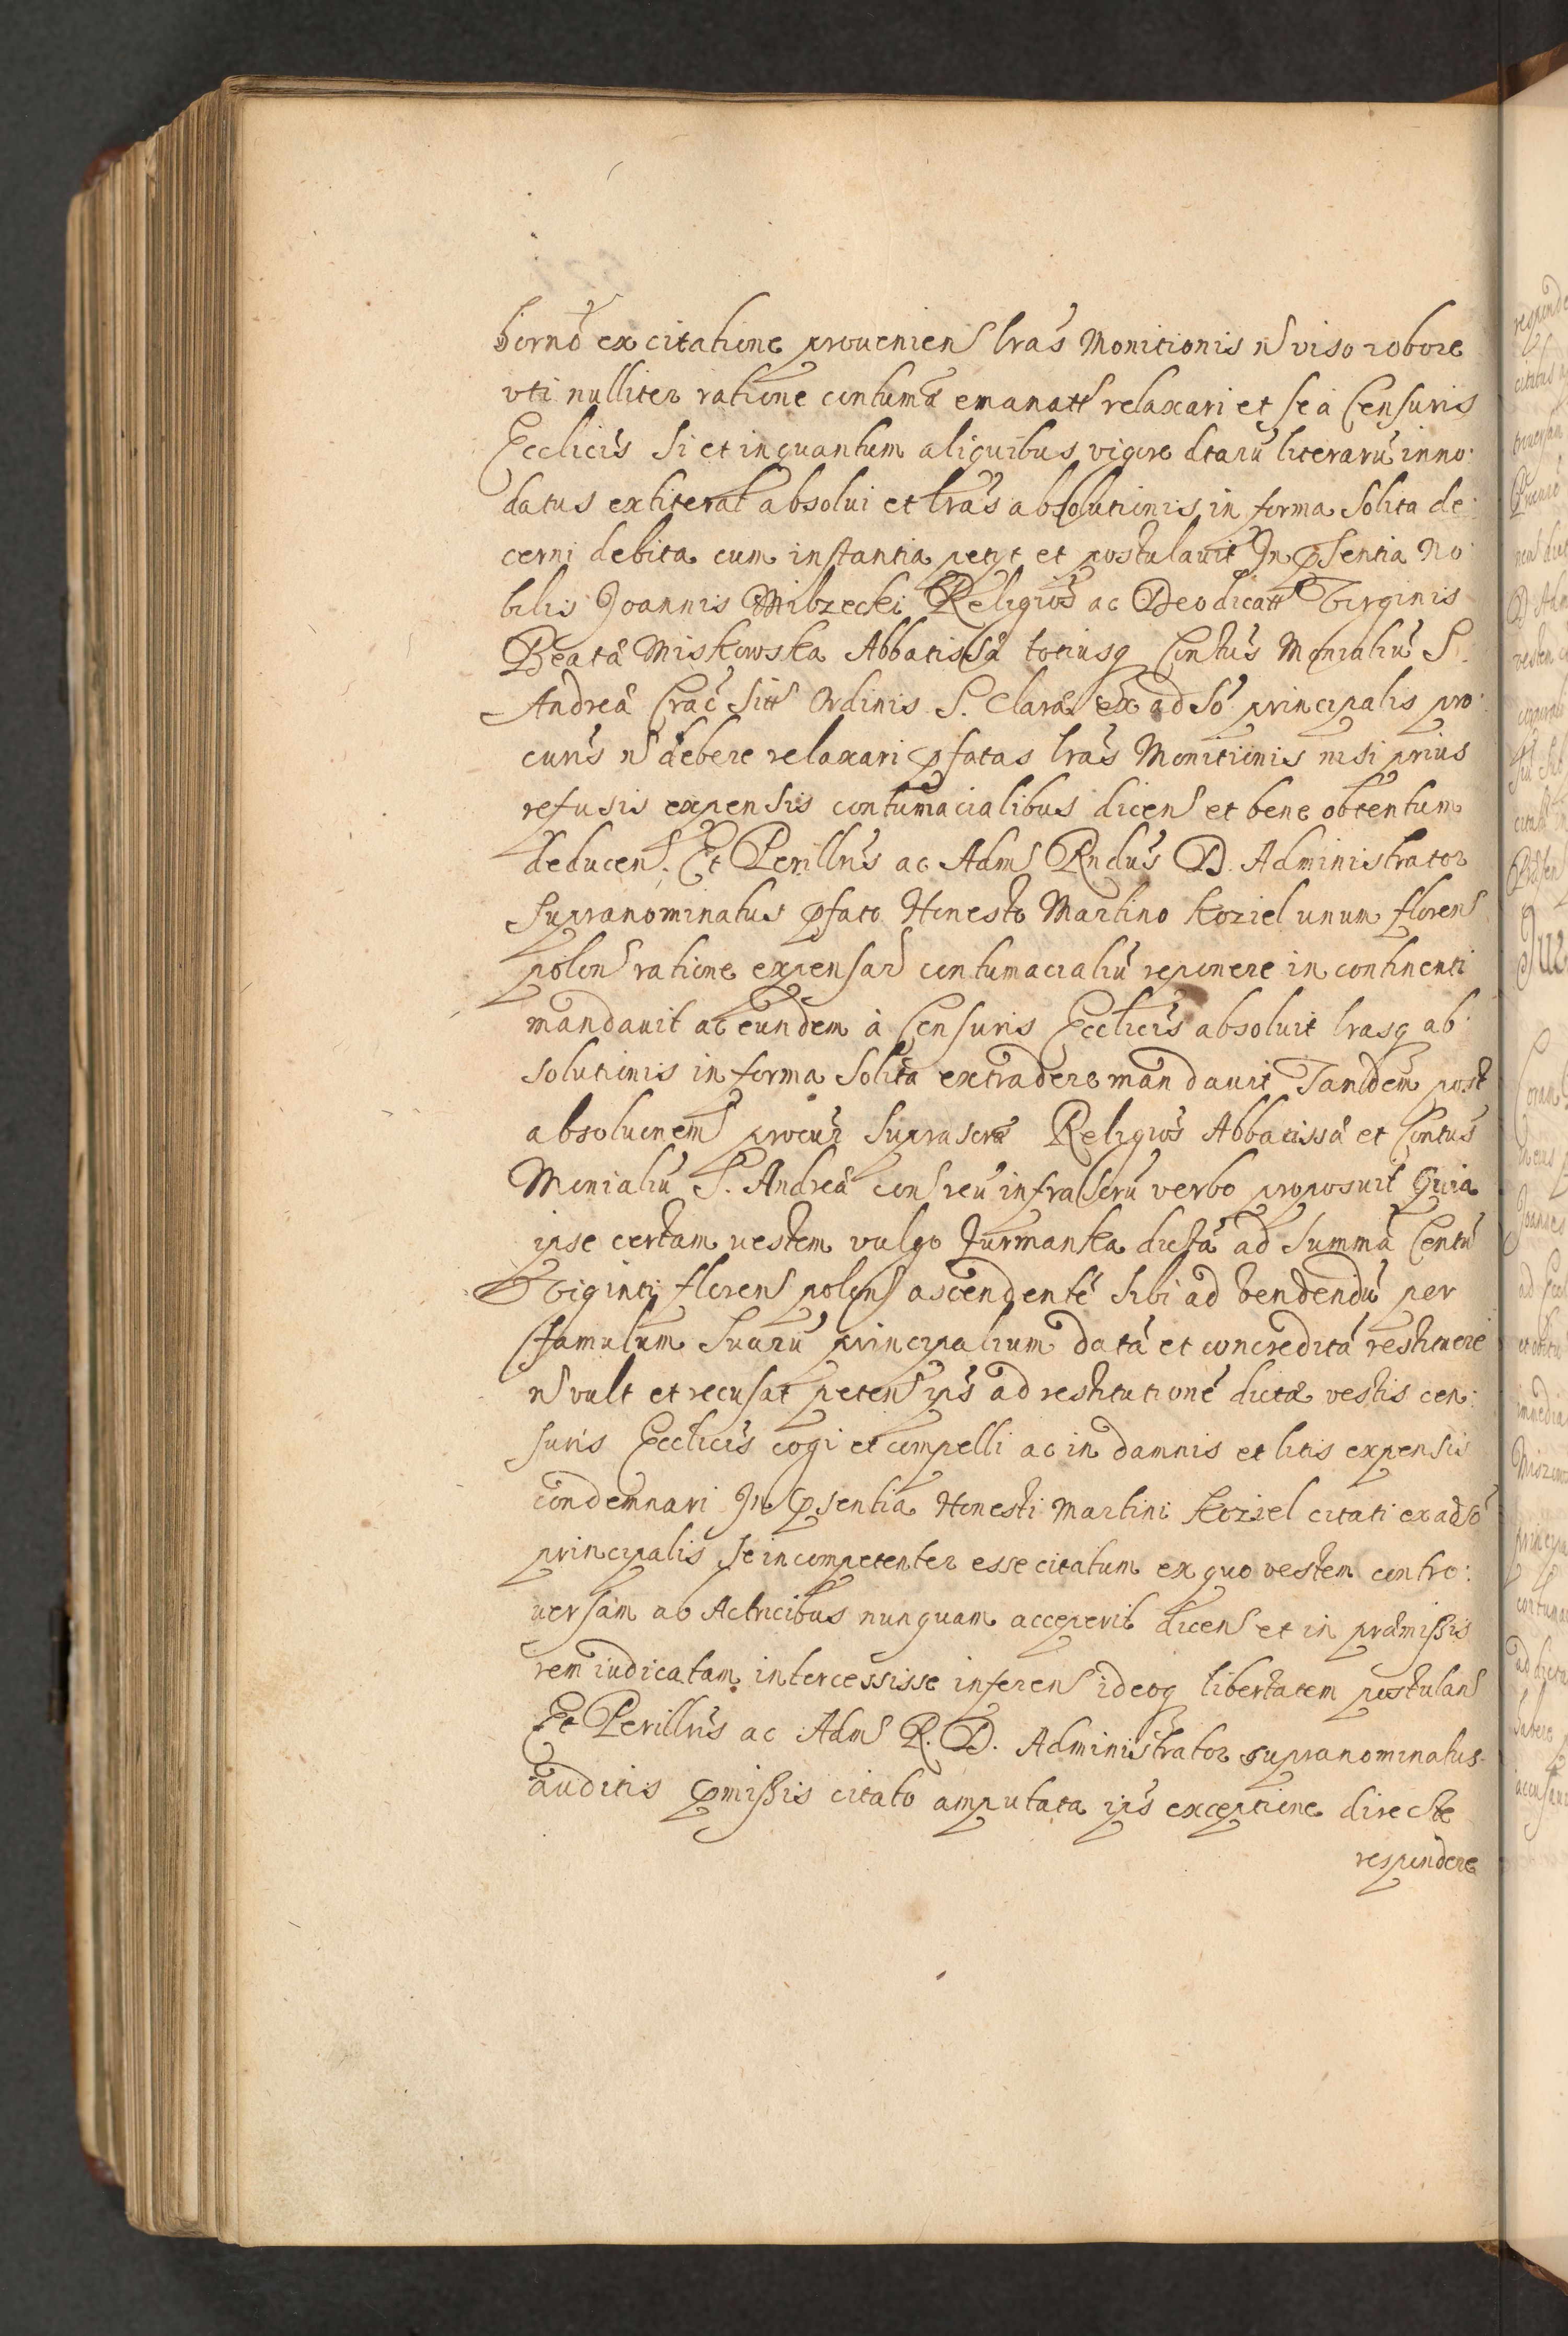 horno ex citatione prouenien lras Monitionis n viso robore
vti nulliter ratione contuma emanatt relaxari et se a Censuris
Ecclicis si et inquantum aliquibus vigore dtaru literaru inno:
datus extiterat absolui et lras absolutionis in forma solita de:
cerni debita cum instantia petyt et postulauit In psentia No
bilis Joannis Milzecki Religios ac Deo dicatt Virginis
Beata Miskowska Abbatissa totiusq Contus Monialiu S.
Andrea Crac sitt Ordinis S. Clara ex adso principalis pro:
curis n debere relaxari pfatas lras Monitionis nisi prius
refusis expensis contumacialibus dicen et bene obtentum
deducen. Et Perillris ac Adm Rndus D. Administrator
supranominatus pfato Honesto Martino Koziel unum floren
polon ratione expensar contumacialiu reponere in continenti
mandauit ac eundem à Censuris Ecclicis absoluit lrasq ab
solutionis in forma solita extradere mandauit Tandem post
absoluonem procur suprascra Religios Abbatissa et Contus
Monialiu S. Andrea con reu infrascru verbo proposuit Quia
ipse certam uestem vulgo Jurmanka dicta ad summa Centu
Viginti floren polon ascendente sibi ad vendendu per
famulum suaru principalium data et concredita restituere
n vult et recusat peten ips ad restitutione dicta vestis cen:
suris Ecclicis cogi et compelli ac in damnis et litis expensis
condemnari In psentia Honesti Martini Koziel citati ex adso
principalis se incompetenter esse citatum ex quo vestem contro:
uersam ab Actricibus nunquam acceperit dicen et in præmissis
rem iudicatam intercessisse inferen ideoq libertatem postulan
Et Perillris ac Adm R. D. Administrator supranominatus
auditis pmissis citato amputata ips exceptione directe
respondere